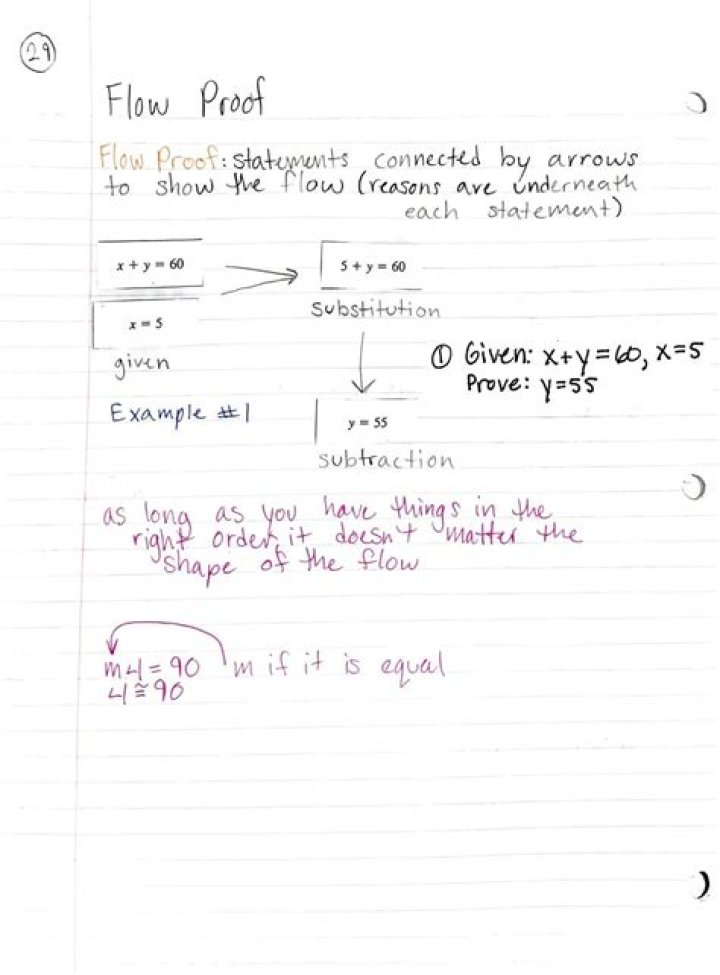 29
Flow Proof
Flow Proof: statements connected by arrows
to show the flow (reasons are underneath
each statement)
x + y = 60
5 + y = 60
substitution
x = 5
given
① Given: x+y=60, x=5
Prove: y=55
Example #1
y = 55
subtraction
as long as you have things in the
right order, it doesn't matter the
shape of the flow
m∠1 = 90 m if it is equal
∠1 ≅ 90